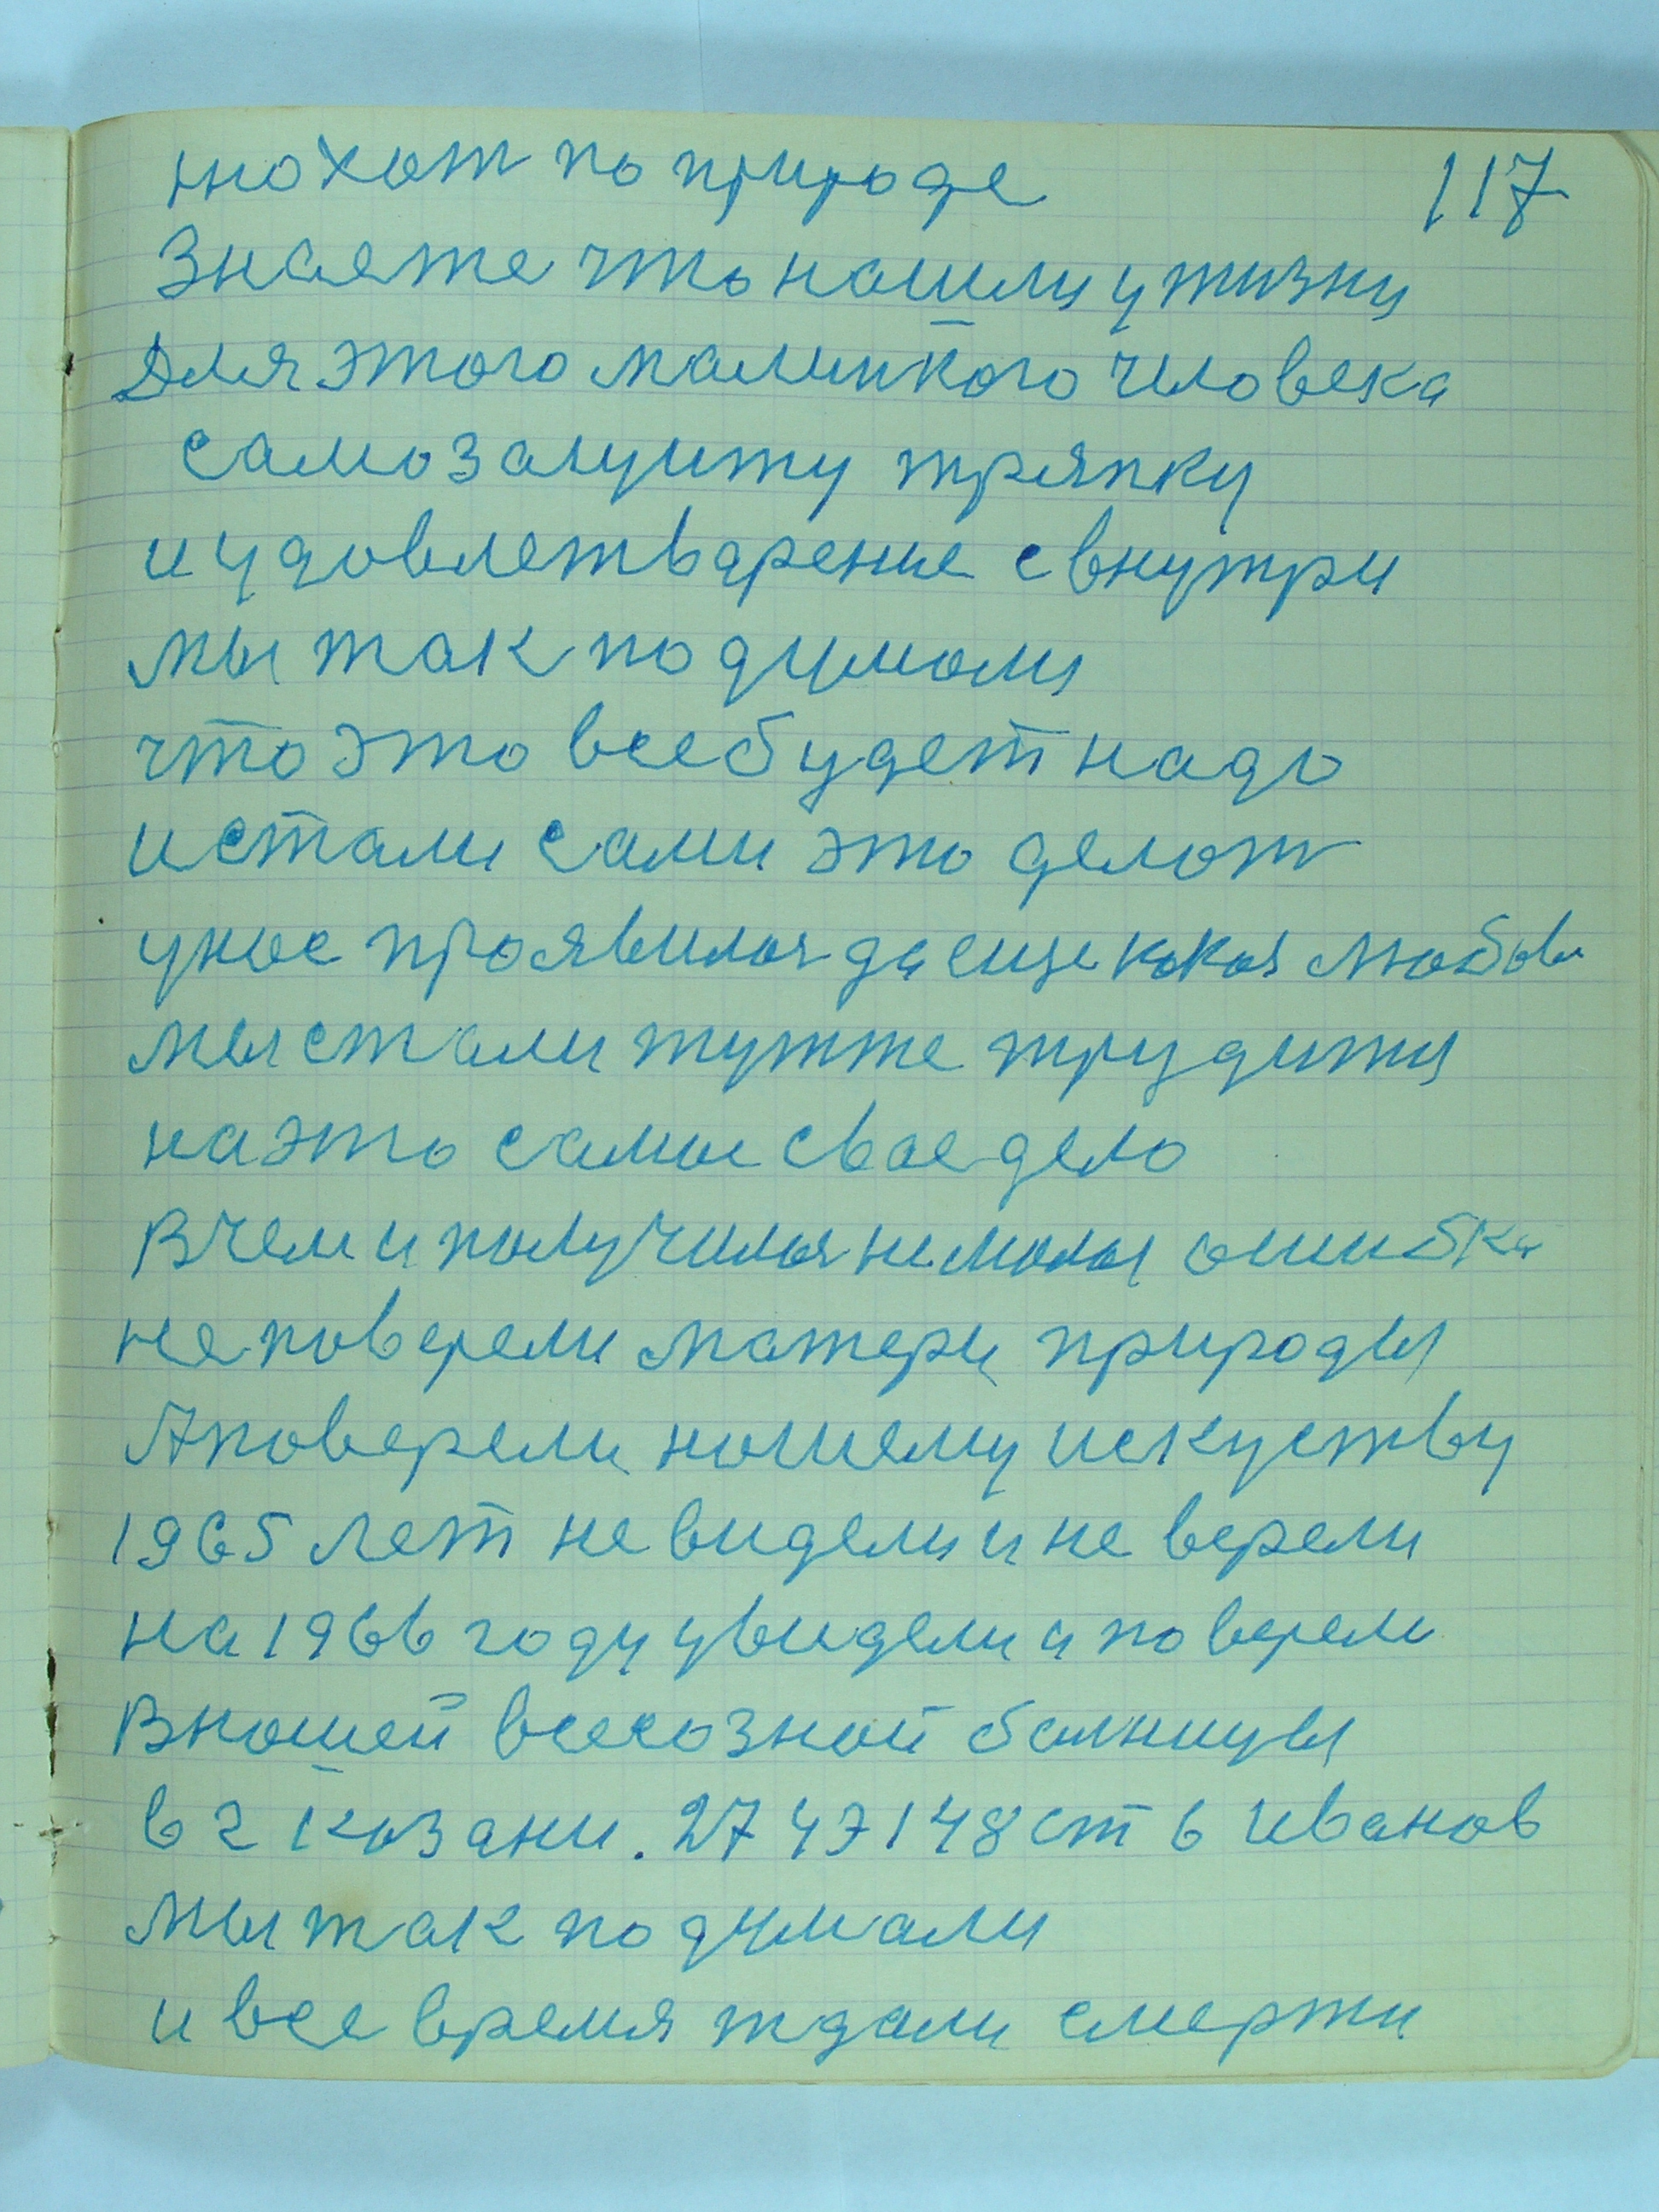 117
нюхат по природе
Знаете что нашли у жизни
Для этого малинкого чиловека
самозащиту тряпку
и удовлетварение свнутри
мы так подумали
что это все будет надо
и стали сами это делат
унас проявилася да еще какая любовь
мы стали тутже трудится
на это самое свое дело
Вчем и получилася немалая ошибка
не поверели матери природы
А поверели нашему искуству
1965 лет не видели и не верели
на 1966 году увидели и поверели
Внашей всесозной болницы
в г Казани. 27 43148 ст 6 Иванов
мы так подумали
и все время ждали смерти